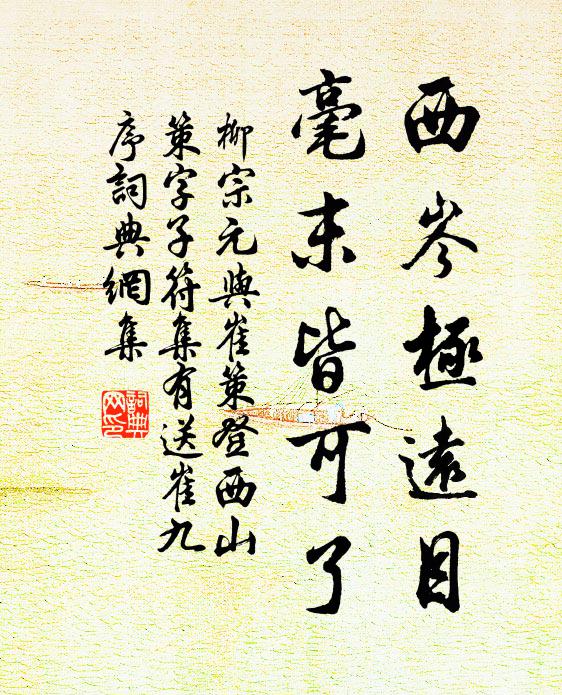 西岑極遠目
毫末皆可了
柳宗元與崔策登西山
策字子符集有送崔九
序詞典網集
詞典
网印